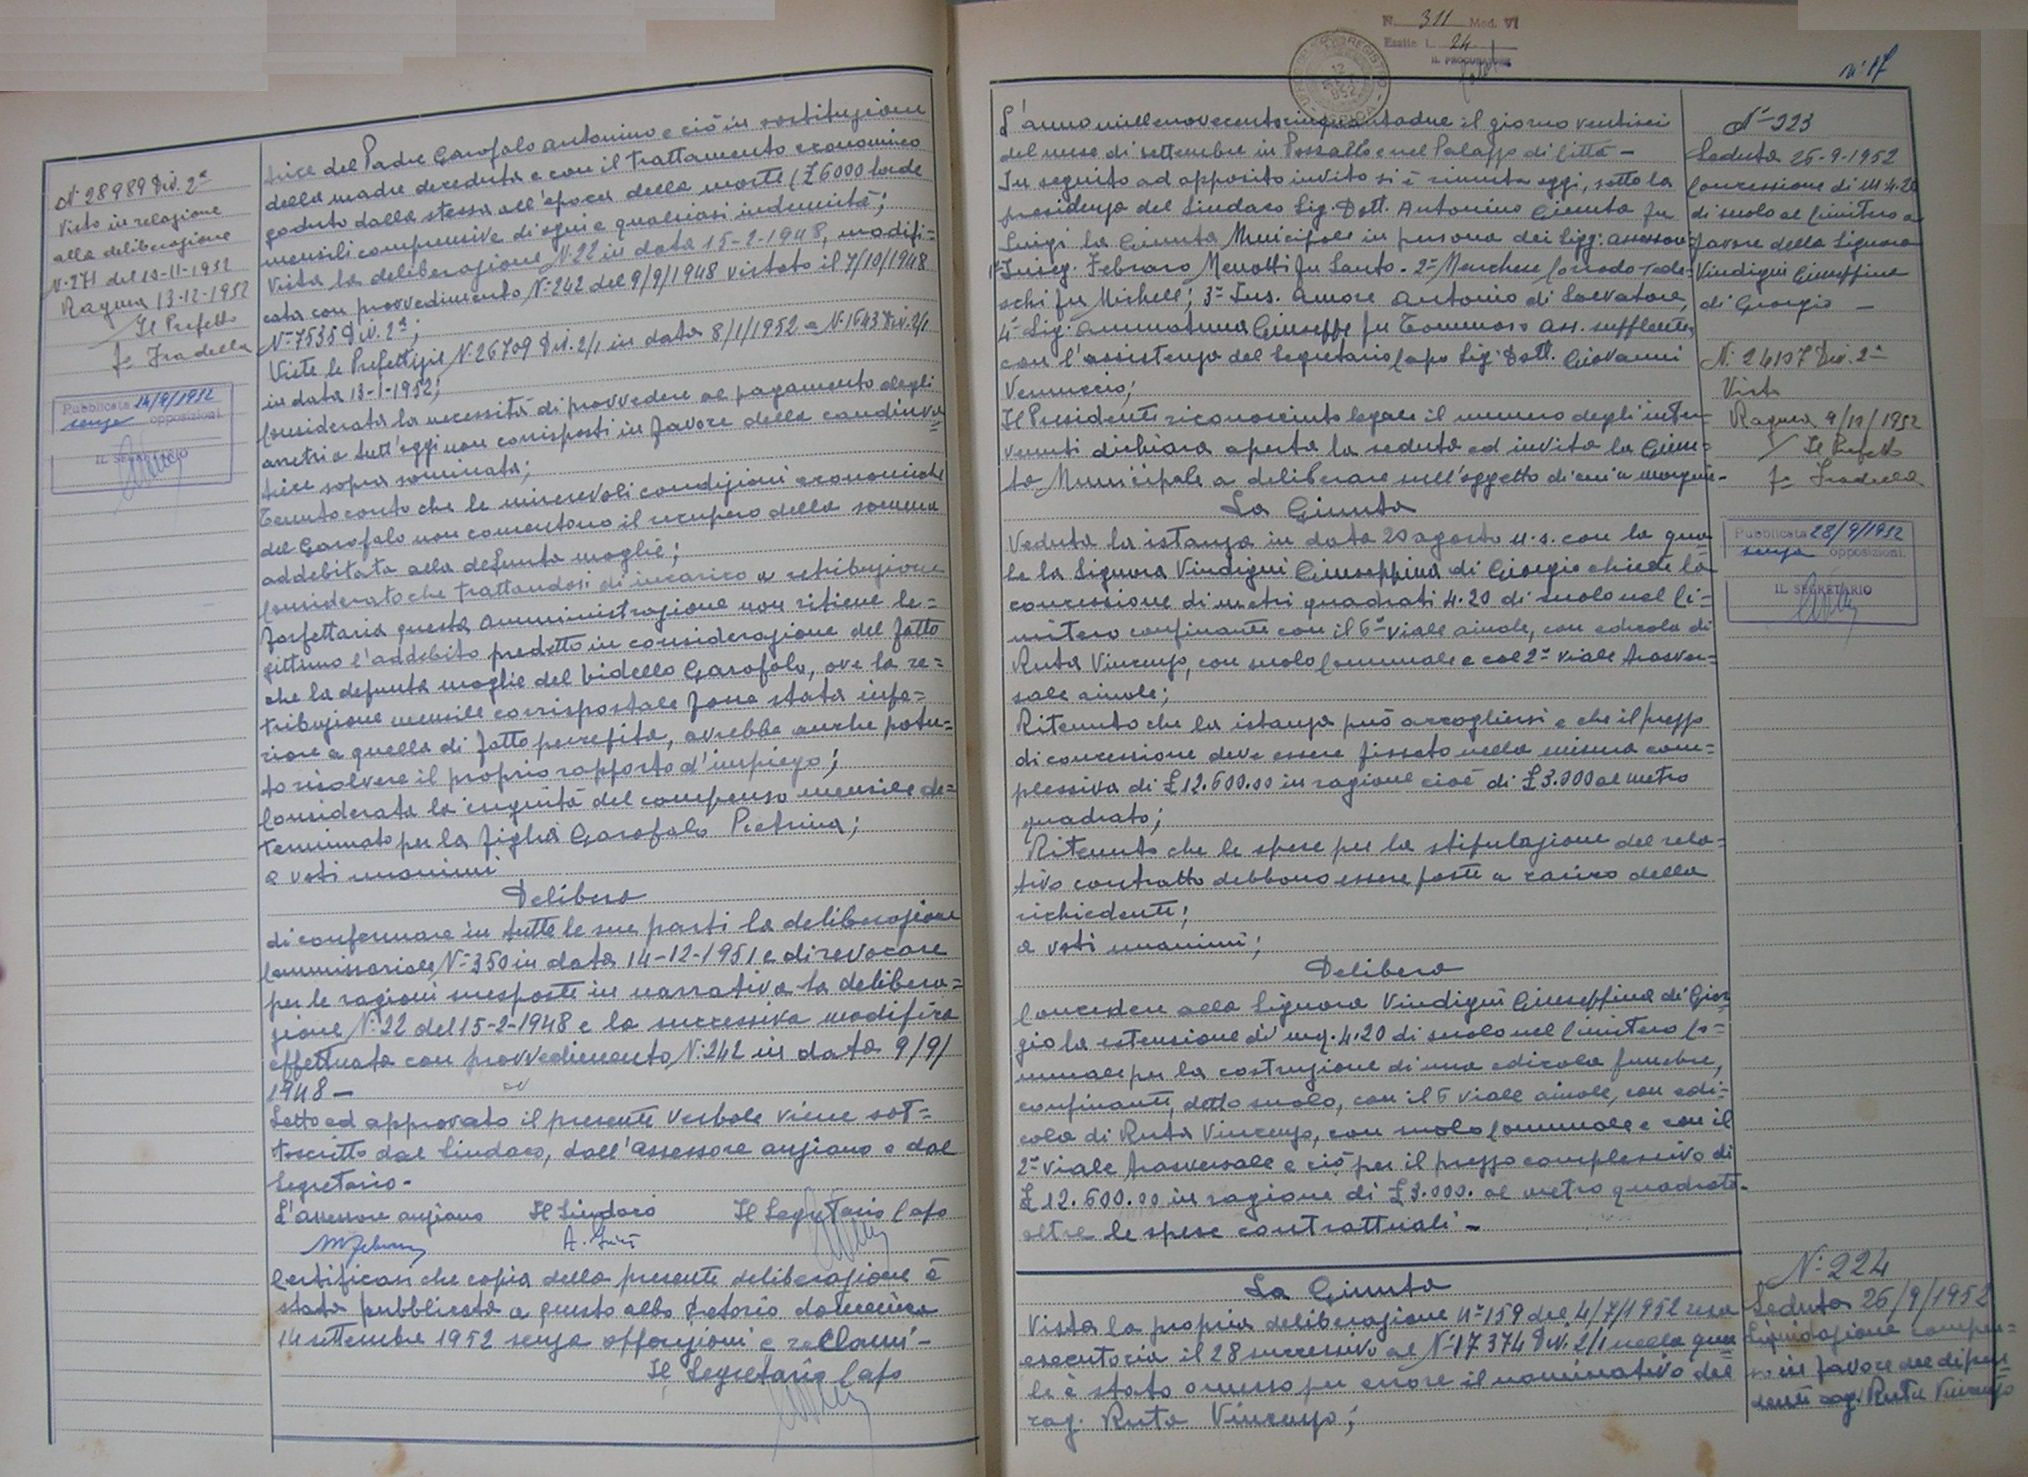 N. 28989 Div. 2ª
Visto in relazione
alla deliberazione
N. 271 del 10-11-1952
Ragusa 13-12-1952
Il Prefetto
Fto Fradella
Pubblicata 14/9/1952
senza opposizioni
IL SEGRETARIO
trice del Padre Garofalo Antonino e ciò in sostituzione
della madre deceduta e con il trattamento economico
goduto dalla stessa all'epoca della morte (£ 6000 lorde
mensili comprensive di ogni e qualsiasi indennità;
Vista la deliberazione N. 22 in data 15-2-1948, modifi=
cata con provvedimento N. 242 del 9/9/1948 vistato il 7/10/1948
N. 7535 Div. 2ª;
Viste le Prefettizie N. 26709 Div. 2/1 in data 8/1/1952 e N. 1543 Div. 2/1
in data 13-1-1952;
Considerata la necessità di provvedere al pagamento degli
arretri a tutt'oggi non corrisposti in favore della coadiuva=
trice sopra nominata;
Tenuto conto che le miserevoli condizioni economiche
del Garofalo non consentono il recupero della somma
addebitata alla defunta moglie;
Considerato che trattandosi di incarico a retribuzione
forfettaria questa Amministrazione non ritiene le=
gittimo l'addebito predetto in considerazione del fatto
che la defunta moglie del bidello Garofalo, ove la re=
tribuzione mensile corrispostale fosse stata infe=
riore a quella di fatto percepita, avrebbe anche potu=
to risolvere il proprio rapporto d'impiego;
Considerata la inguità del compenso mensile de=
terminato per la figlia Garofalo Pietrina;
a voti unanimi
Delibera
di confermare in tutte le sue parti la deliberazione
Commissariale N. 350 in data 14-12-1951 e di revocare
per le ragioni suesposte in narrativa la delibera=
zione N. 22 del 15-2-1948 e la successiva modifica
effettuata con provvedimento N. 242 in data 9/9/
1948 -
Letto ed approvato il presente verbale viene sot=
toscritto dal Sindaco, dall'Assessore anziano e dal
Segretario -
L'assessore anziano Il Sindaco Il Segretario Capo
Certificasi che copia della presente deliberazione è
stata pubblicata a questo albo Pretorio domenica
14 settembre 1952 senza opposizioni e reclami -
Il Segretario Capo
N. 311 Mod. VI
Esatte L. 24
IL PROCURATORE
N. 17
L'anno millenovecentocinquantadue il giorno ventisei
del mese di settembre in Pozzallo e nel Palazzo di Città -
In seguito ad apposito invito si è riunita oggi, sotto la
presidenza del Sindaco Sig. Dott. Antonino Giunta fu
Luigi la Giunta Municipale in persona dei Sigg: assessori
1º Inseg. Febraro Menotti fu Santo - 2º Marchese Corrado Tede=
schi fu Michele; 3º Ins. Amore Antonio di Salvatore,
4º Sig: Ammatuna Giuseppe fu Tommaso Ass. supplente,
con l'assistenza del Segretario Capo Sig. Dott. Giovanni
Vennuccio;
Il Presidente riconosciuto legale il numero degli inter=
venuti dichiara aperta la seduta ed invita la Giun=
ta Municipale a deliberare sull'oggetto di cui a margine -
La Giunta
Veduta la istanza in data 20 agosto u.s. con la qua
le la Signora Vindigni Giuseppina di Giorgio chiede la
concessione di metri quadrati 4.20 di suolo nel Ci=
mitero confinante con il 6º viale aiuole, con edicola di
Ruta Vincenzo, con suolo Comunale e col 2º viale trasver=
sale aiuole;
Ritenuto che la istanza può accogliersi e che il prezzo
di concessione deve essere fissato nella misura com=
plessiva di £ 12.600.00 in ragione cioè di £ 3.000 al metro
quadrato;
Ritenuto che le spese per la stipulazione del rela=
tivo contratto debbono essere poste a carico della
richiedente;
a voti unanimi;
Delibera
Concedere alla Signora Vindigni Giuseppina di Gior
gio la estensione di mq. 4.20 di suolo nel Cimitero Co=
munale per la costruzione di una edicola funebre,
confinante, detto suolo, con il 6 viale aiuole, con edi=
cola di Ruta Vincenzo, con suolo Comunale e con il
2º viale trasversale e ciò per il prezzo complessivo di
£ 12.600.00 in ragione di £ 3.000. al metro quadrato -
oltre le spese contrattuali -
La Giunta
Vista la propria deliberazione Nº 159 del 4/7/1952 resa
esecutoria il 28 successivo al N. 17374 Div. 2/1 nella qua
le è stato omesso per errore il nominativo del
rag. Ruta Vincenzo;
Nº 223
Seduta 26-9-1952
Concessione di m. 4.20
di suolo al Cimitero a
favore della Signora
Vindigni Giuseppina
di Giorgio -
N. 24107 Div. 2ª
Visto
Ragusa 9/10/1952
Il Prefetto
Fto Fradella
Pubblicata 28/9/1952
senza opposizioni.
IL SEGRETARIO
N. 224
Seduta 26/9/1952
Liquidazione compen=
so in favore del dipen
dente rag. Ruta Vincenzo